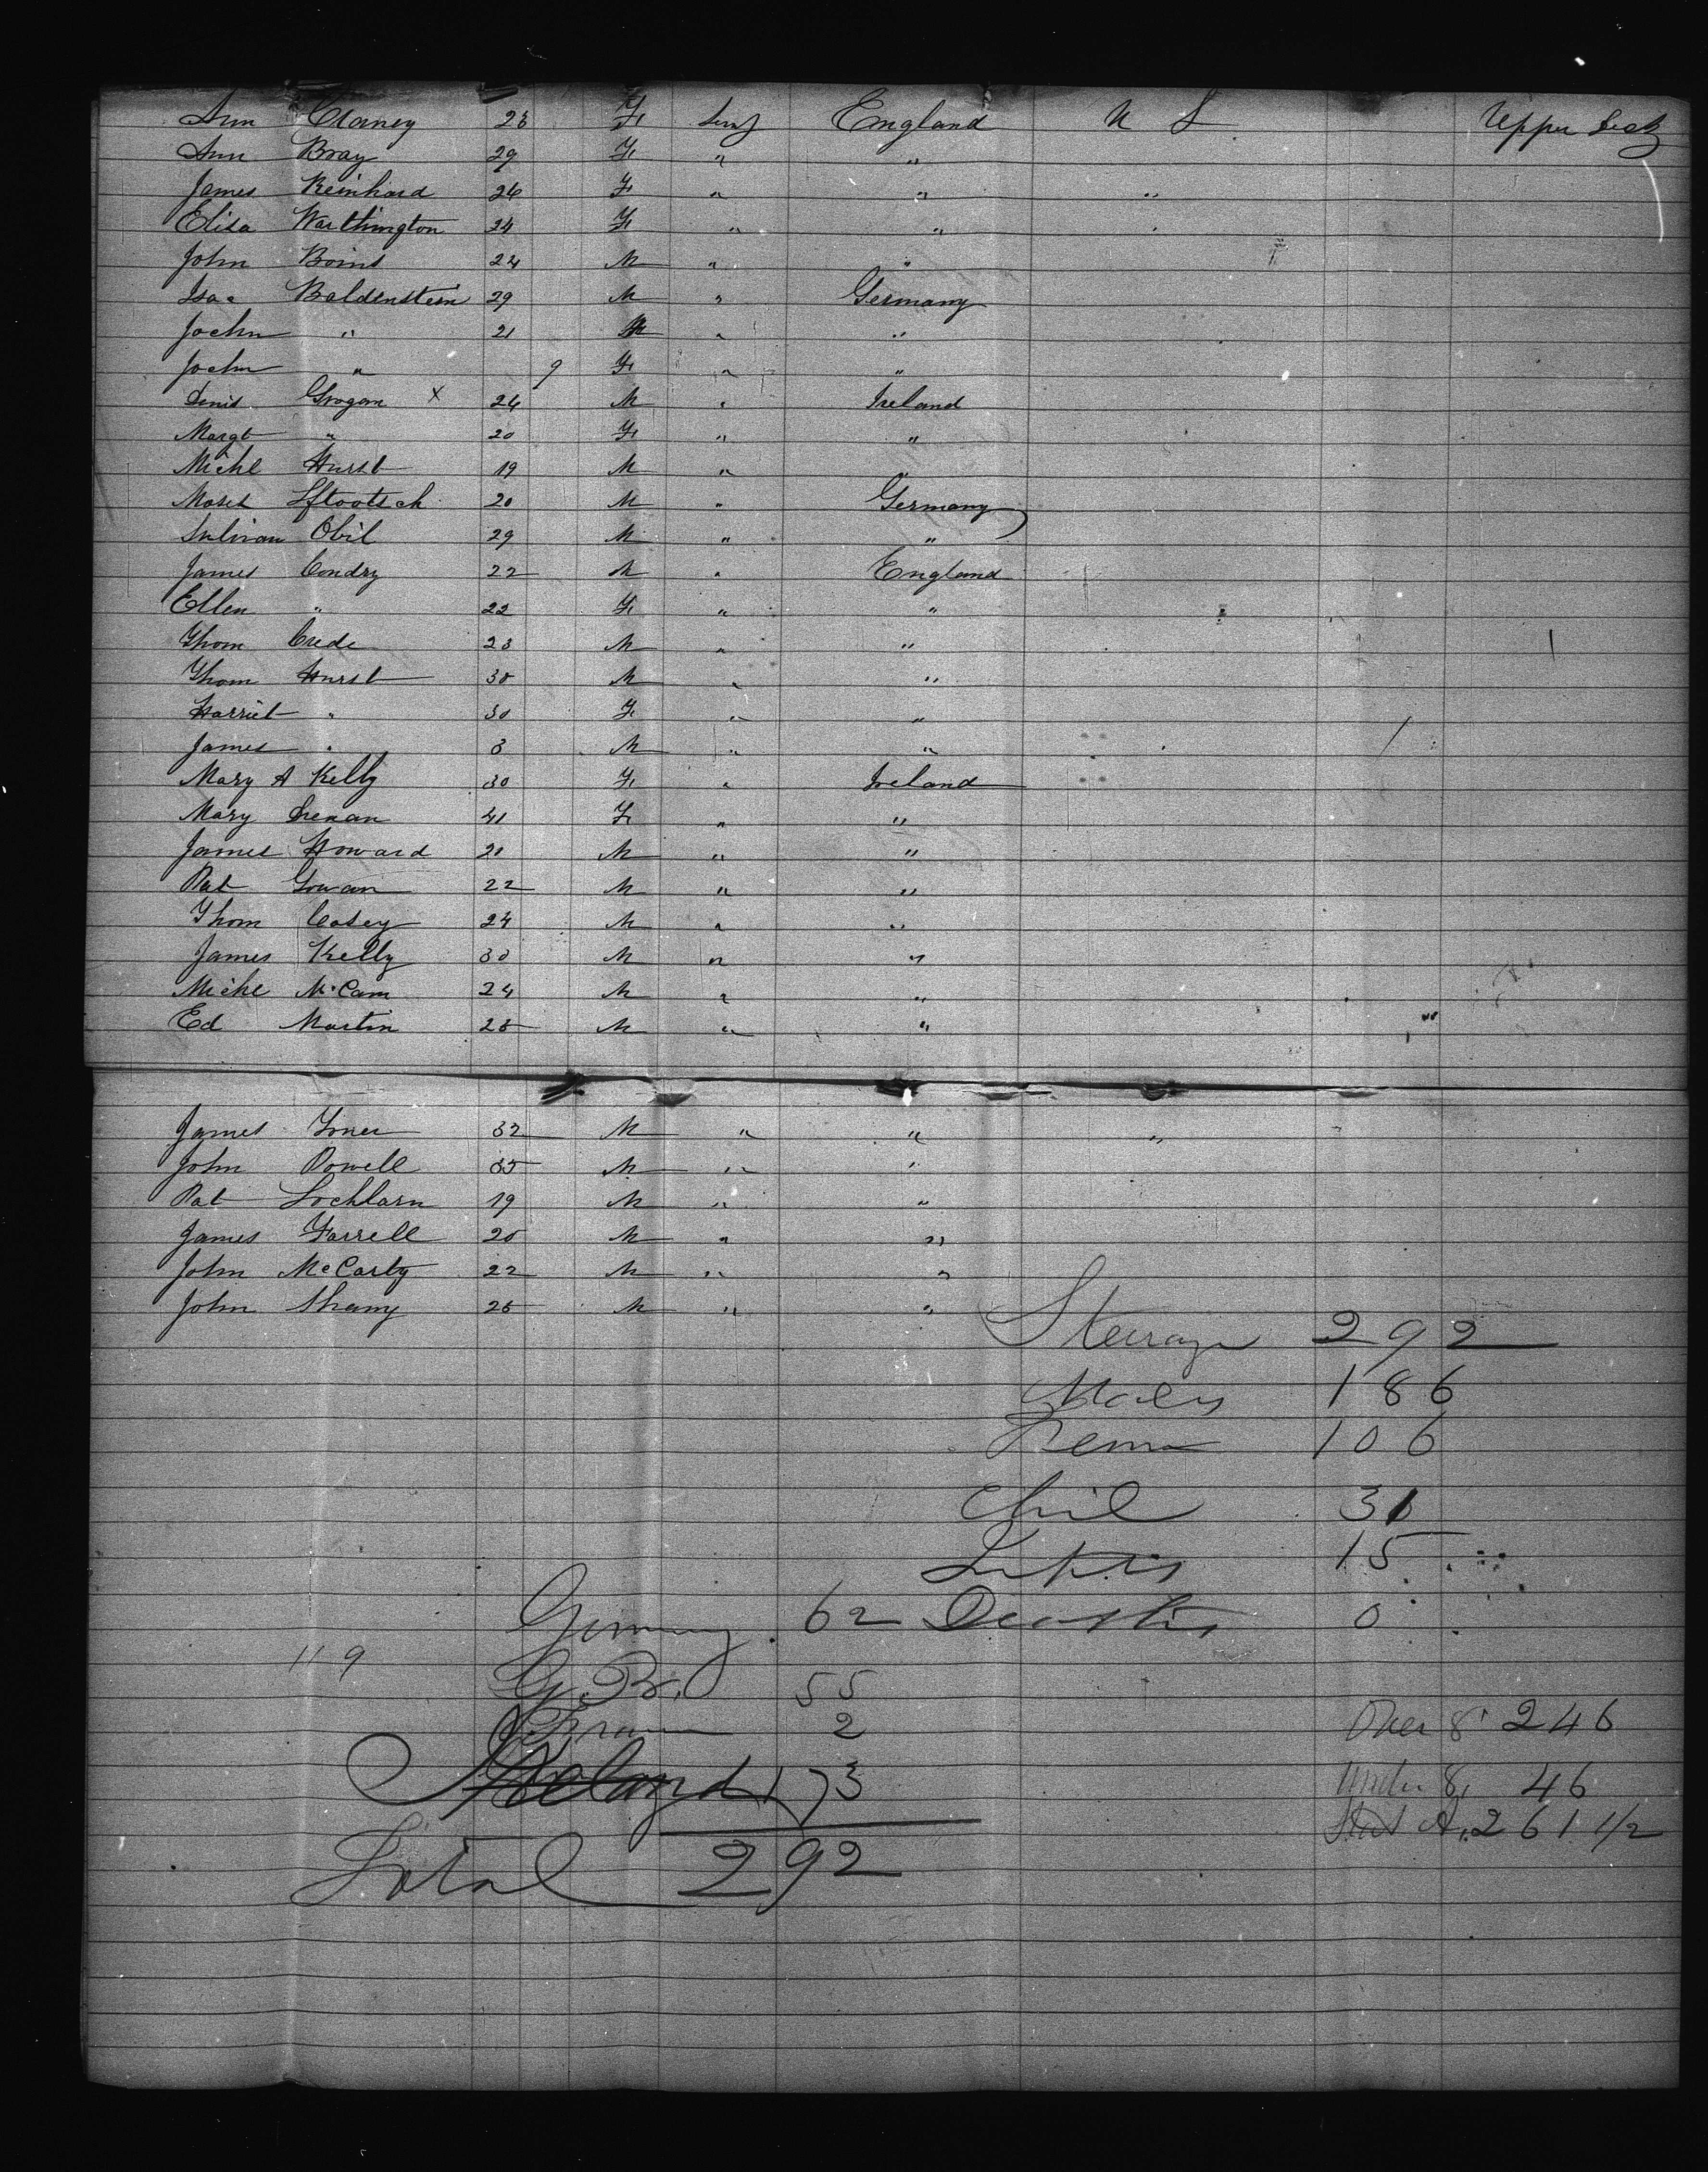 Ann Claney 28 F Serv England U S Upper Deck
Ann Bray 29 F " "
James Reinhard 26 F " " "
Elisa Warthington 24 F " " "
John Boins 24 M " "
Isac Baldenstein 29 M " Germany
Jochn " 21 M " "
Jochn " 9 F " "
Denis Grogan x 24 M " Ireland
Margt " 20 F " "
Michl Hurst 19 M " "
Moses 20 M " Germany
Obil 29 M " "
James Condry 22 M " England
Ellen " 22 F " "
Thom Crede 23 M " "
Thom Hurst 30 M " "
Harriet " 30 F " "
James " 3 M " "
Mary A Kelly 30 F " Ireland
Mary 41 F " "
James Howard 21 M " "
Pat Gowan 22 M " "
Thom Casey 24 M " "
James Kelly 30 M " "
Michl McCam 24 M " "
Ed Martin 25 M " "
James 32 M " " "
John Powell 35 M " "
Pat Lochlarn 19 M " "
James Farrell 20 M " "
John McCarty 22 M " "
John Shany 25 M " "
Steerage 292
Males 186
Fem 106
Chil 31
15
Germany 62 Deaths 0
119
G. Br. 55
France 2
Over 8 246
Ireland 173
Under 8, 46
Stat A. 261 1/2
Total 292